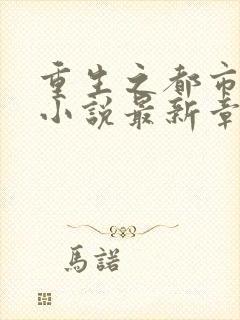 重生之都市
小說最新章
馬諾